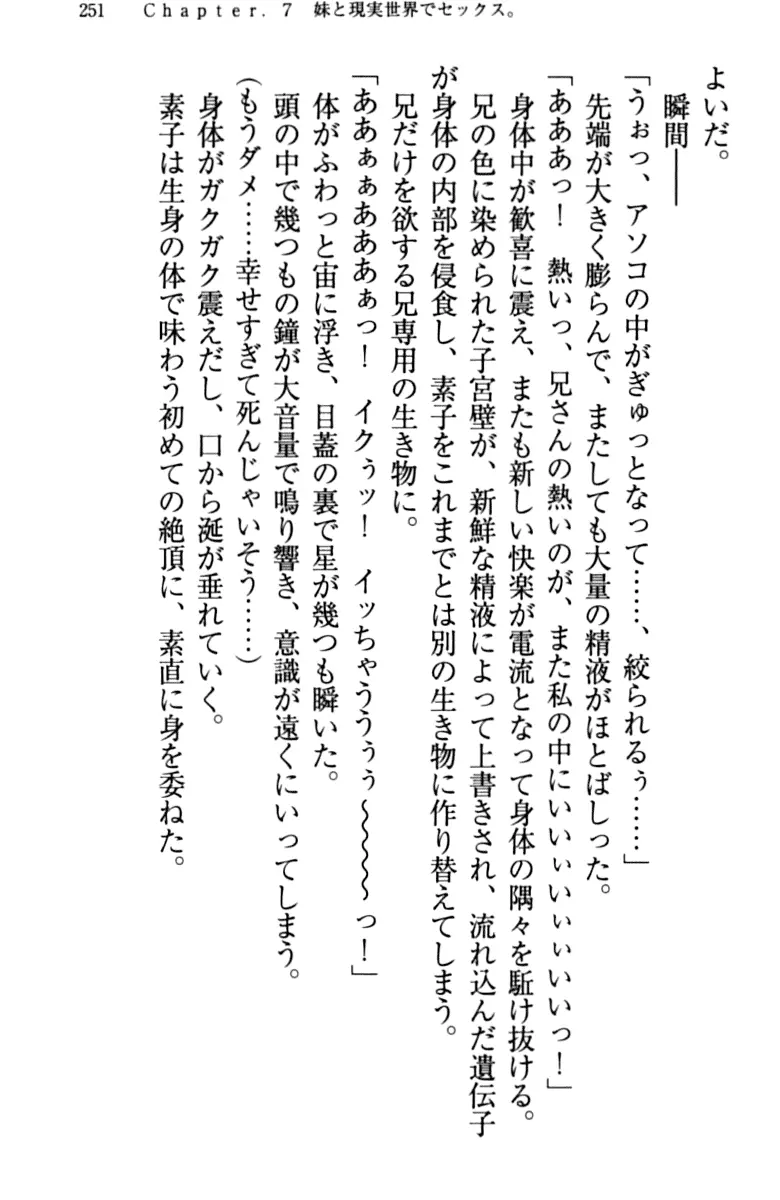 251 Chapter. 7 妹と現実世界でセックス。
よいだ。
瞬間――
「うぉっ、アソコの中がぎゅっとなって……、絞られるぅ……」
先端が大きく膨らんで、またしても大量の精液がほとばしった。
「あああっ！　熱いっ、兄さんの熱いのが、また私の中にいいぃいぃぃいいっ！」
身体中が歓喜に震え、またも新しい快楽が電流となって身体の隅々を駈け抜ける。
兄の色に染められた子宮壁が、新鮮な精液によって上書きされ、流れ込んだ遺伝子
が身体の内部を侵食し、素子をこれまでとは別の生き物に作り替えてしまう。
兄だけを欲する兄専用の生き物に。
「ああぁぁあああぁっ！　イクぅッ！　イッちゃううぅぅ～～～～っ！」
体がふわっと宙に浮き、目蓋の裏で星が幾つも瞬いた。
頭の中で幾つもの鐘が大音量で鳴り響き、意識が遠くにいってしまう。
（もうダメ……幸せすぎて死んじゃいそう……）
身体がガクガク震えだし、口から涎が垂れていく。
素子は生身の体で味わう初めての絶頂に、素直に身を委ねた。